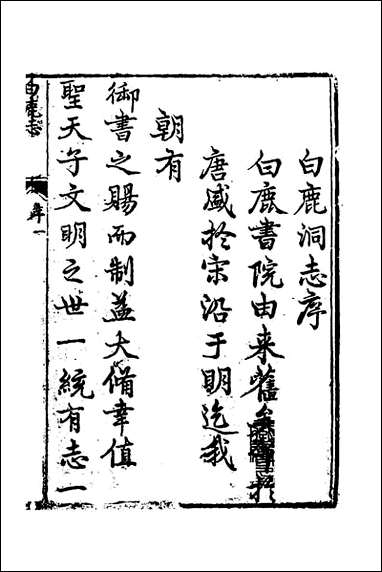 白鹿洞志序
白鹿書院由来舊矣於
唐盛於宋沿于明迄我
朝有
御書之賜而制益大備幸值
聖天子文明之世一統有志一
白鹿志
序一